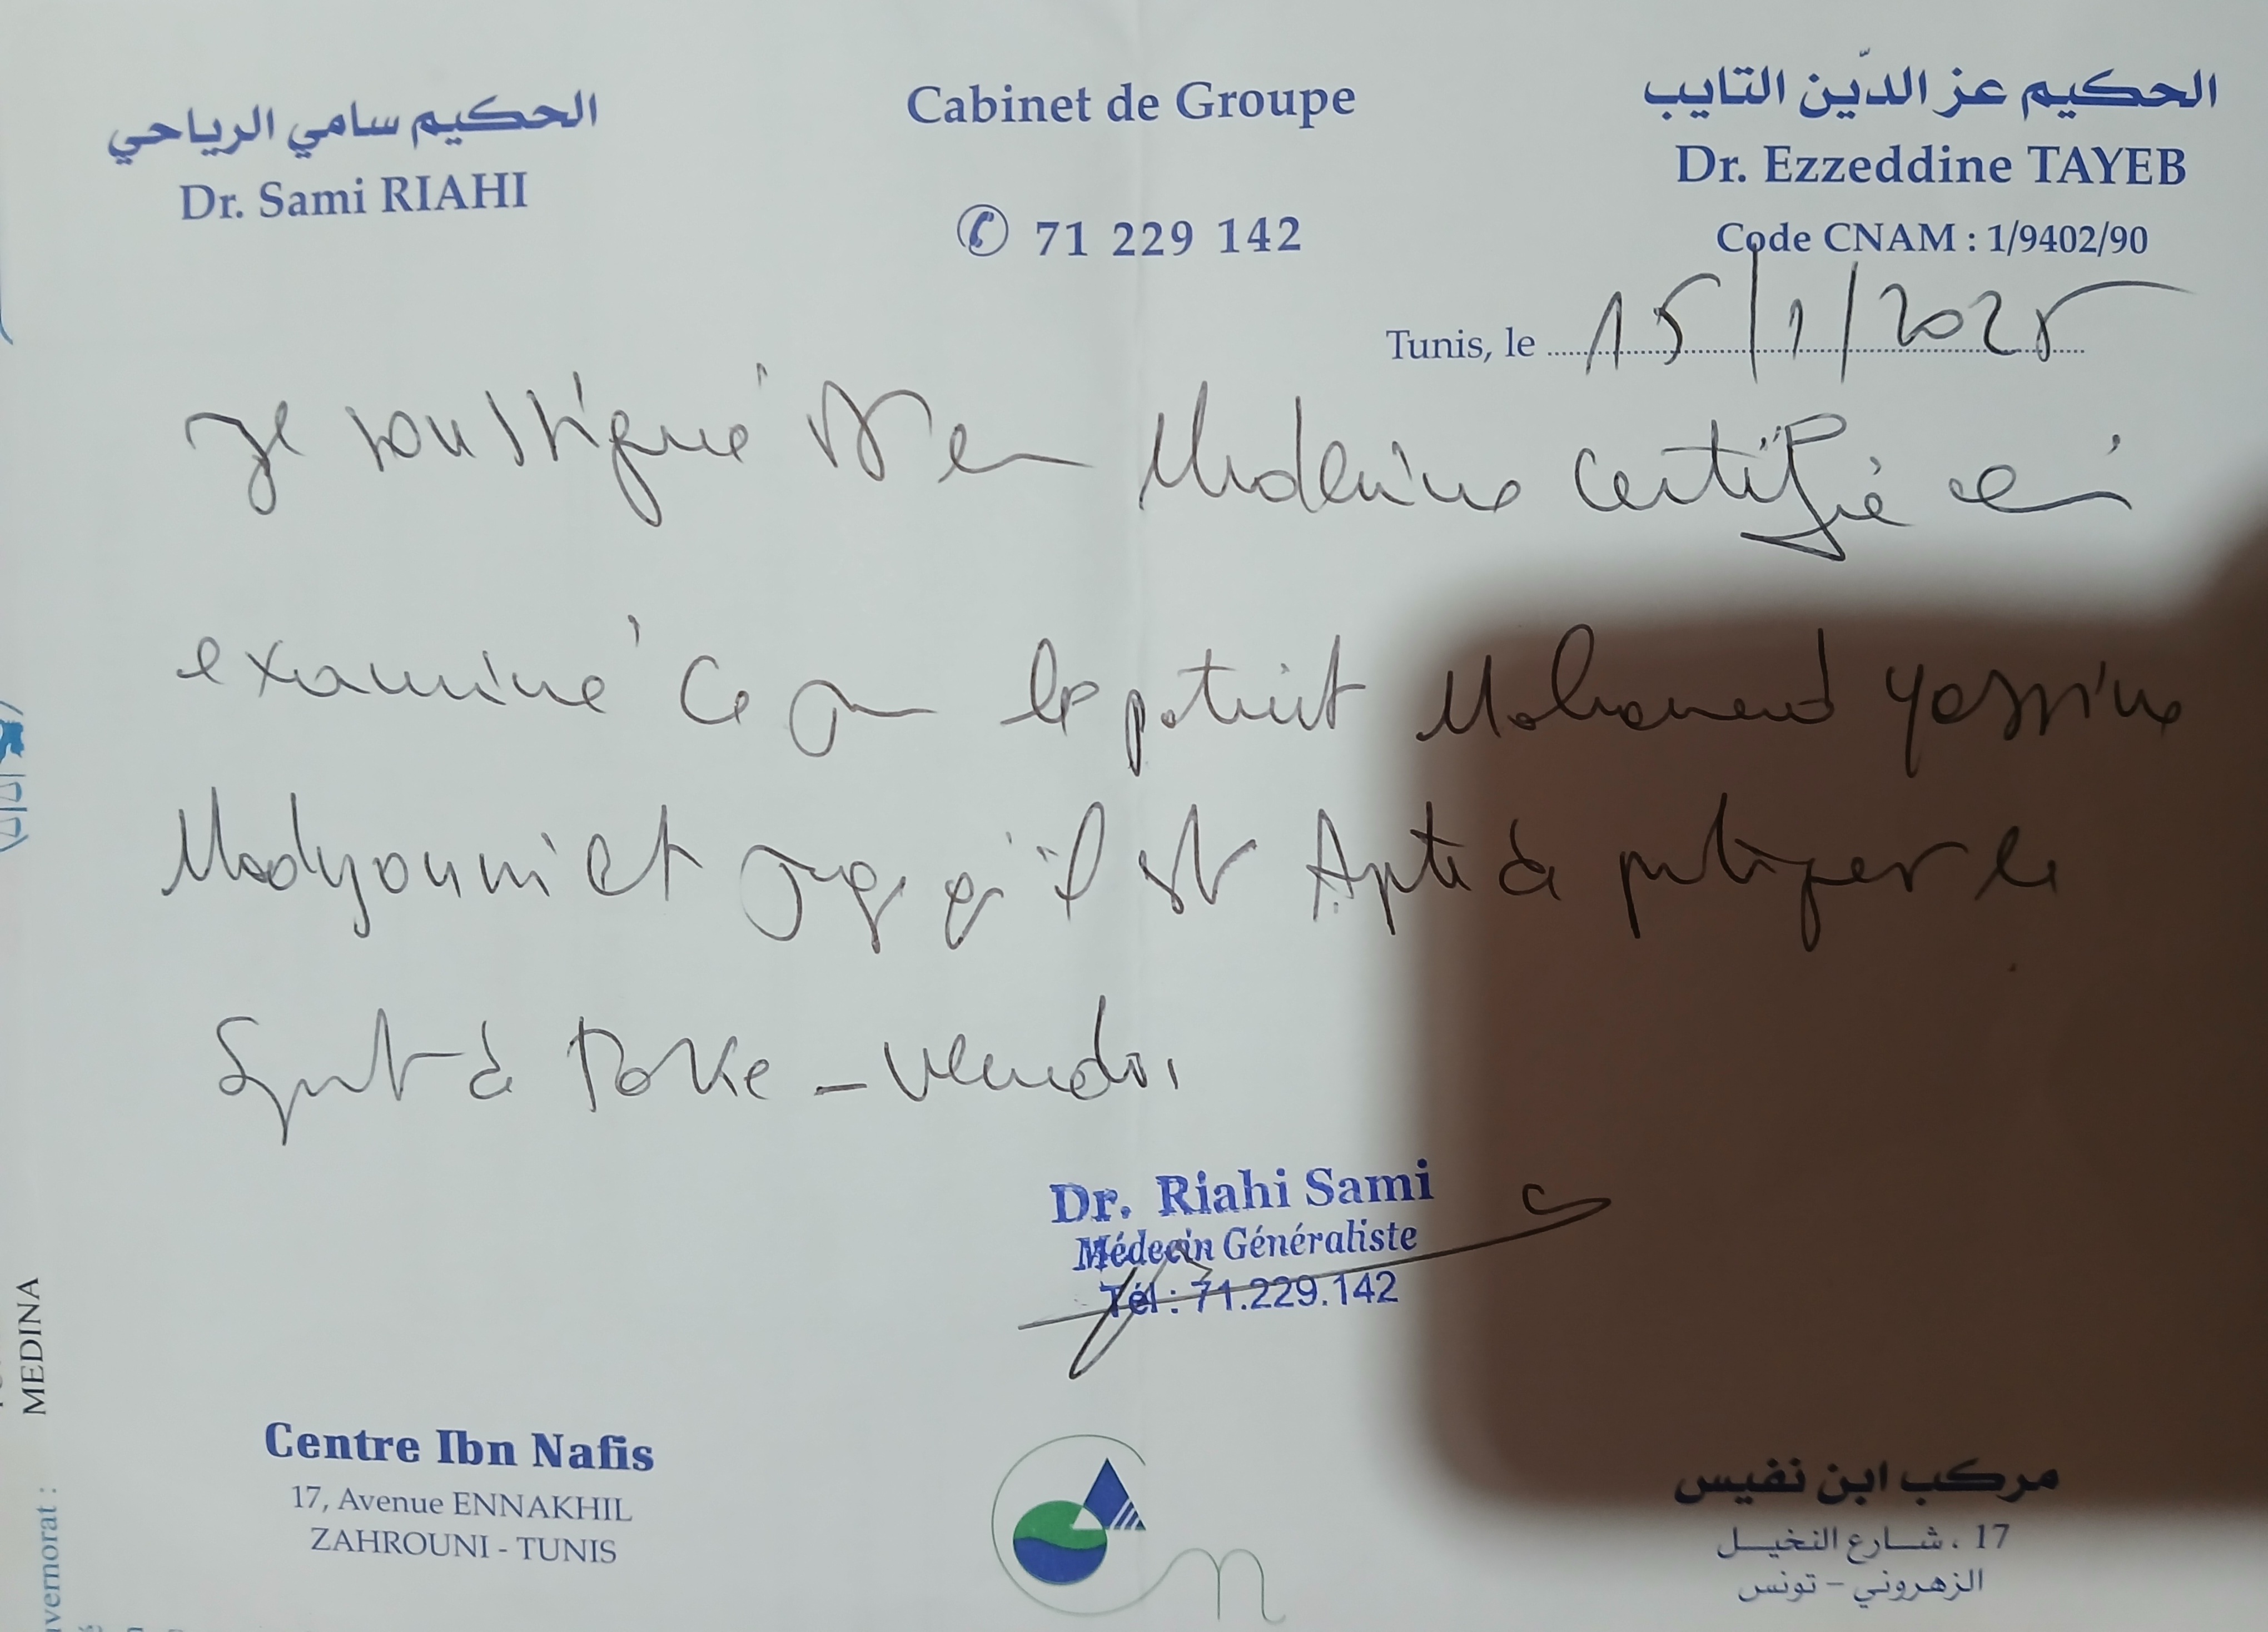 الحكيم سامي الرياحي
Dr. Sami RIAHI
Cabinet de Groupe
71 229 142
الحكيم عز الدّين التايب
Dr. Ezzeddine TAYEB
Code CNAM : 1/9402/90
Tunis, le 15/1/2025
Je soussigné Dr en Medecine certifie
examiné ce jour le patient Mohamed Yassine
Madyouni et juge qu'il est Apte à pratiquer le
Sport à
Dr. Riahi Sami
Médecin Généraliste
Tél : 71.229.142
Centre Ibn Nafis
17, Avenue ENNAKHIL
ZAHROUNI - TUNIS
مركب ابن نفيس
17 ، شارع النخيل
الزهروني - تونس
MEDINA
vernorat :